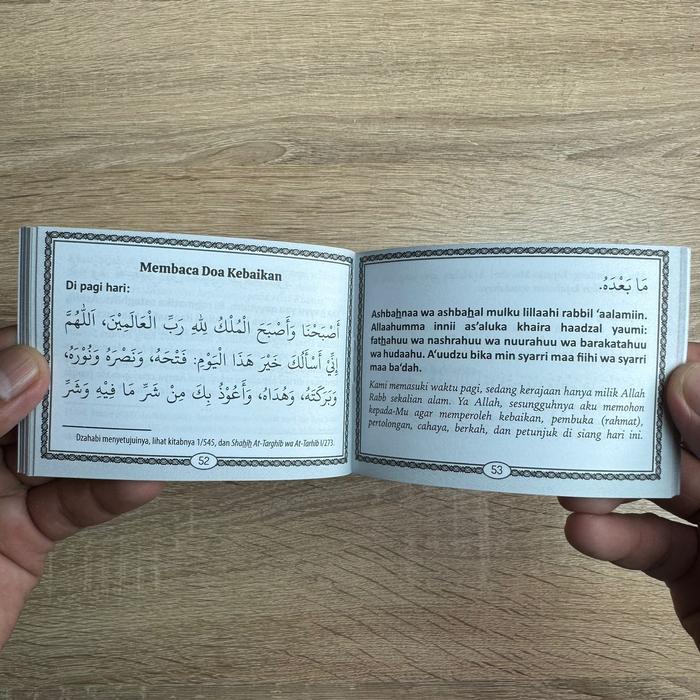 Membaca Doa Kebaikan
Di pagi hari:
أَصْبَحْنَا وَأَصْبَحَ الْمُلْكُ لِلّٰهِ رَبِّ الْعَالَمِيْنَ، اَللّٰهُمَّ
إِنِّيْ أَسْأَلُكَ خَيْرَ هَذَا الْيَوْمِ: فَتْحَهُ، وَنَصْرَهُ وَنُوْرَهُ،
وَبَرَكَتَهُ، وَهُدَاهُ، وَأَعُوْذُ بِكَ مِنْ شَرِّ مَا فِيْهِ وَشَرِّ
Dzahabi menyetujuinya, lihat kitabnya 1/545, dan Shahih At-Targhib wa At-Tarhib I/273.
52
مَا بَعْدَهُ.
Ashbahnaa wa ashbahal mulku lillaahi rabbil ‘aalamiin.
Allaahumma innii as’aluka khaira haadzal yaumi:
fathahuu wa nashrahuu wa nuurahuu wa barakatahuu
wa hudaahu. A’uudzu bika min syarri maa fiihi wa syarri
maa ba’dah.
Kami memasuki waktu pagi, sedang kerajaan hanya milik Allah
Rabb sekalian alam. Ya Allah, sesungguhnya aku memohon
kepada-Mu agar memperoleh kebaikan, pembuka (rahmat),
pertolongan, cahaya, berkah, dan petunjuk di siang hari ini.
53